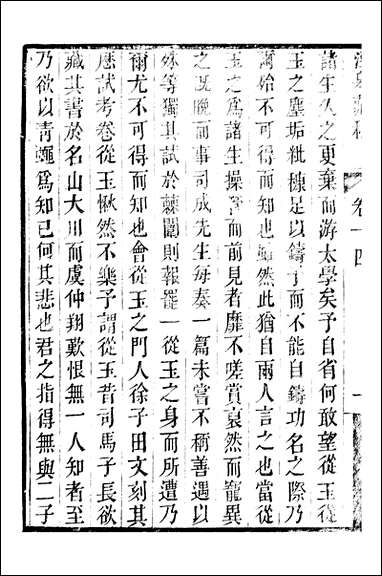 卷十四
諸生久之更棄而游太學矣予自省何敢望從玉從
玉之塵垢粃穅足以鑄予而不能自鑄功名之際乃
爾始不可得而知也雖然此猶自兩人言之也當從
玉之爲諸生操 而前見者靡不嗟賞裒然而寵異
之旣晚而事司成先生每奏一篇未嘗不稱善遇以
殊等獨其試於棘闈則報罷一從玉之身而所遭乃
爾尤不可得而知也會從玉之門人徐子田文刻其
應試考卷從玉愀然不樂予謂從玉昔司馬子長欲
藏其書於名山大川而虞仲翔歎恨無一人知者至
乃欲以青蠅爲知己何其悲也君之指得無與二子